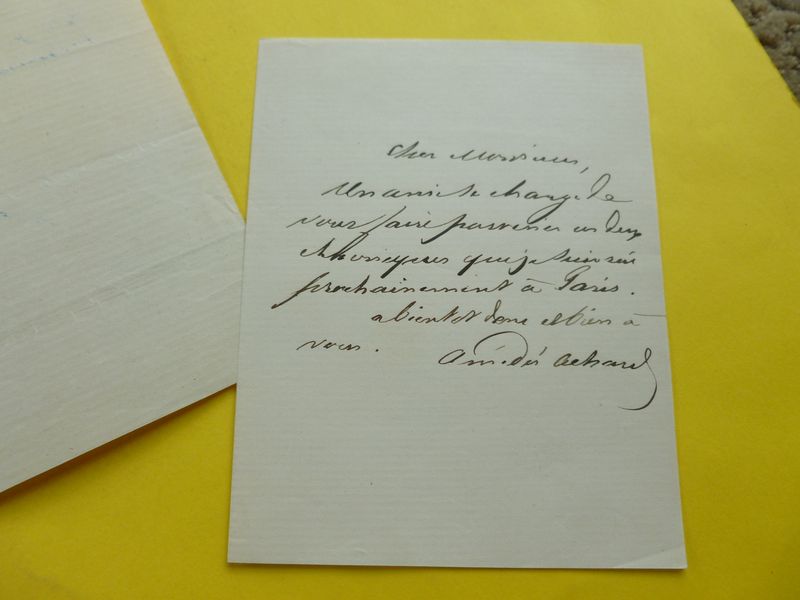 Cher Monsieur,
Un ami se charge de
vous faire parvenir ces deux
chroniques que je suivrai
prochainement à Paris.
a bientot donc et bien à
vous. Amédée Achard